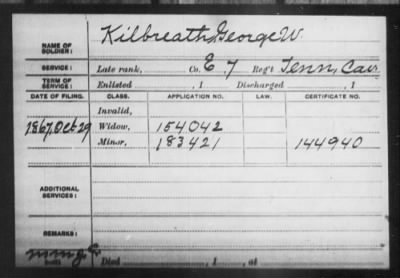 NAME OF SOLDIER: Kilbreath, George W.
SERVICE: Late rank, Co. E 7 Reg't Tenn. Cav.
TERM OF SERVICE: Enlisted , 1 Discharged , 1
DATE OF FILING. CLASS. APPLICATION NO. LAW. CERTIFICATE NO.
Invalid,
1867, Oct. 29 Widow, 154042
Minor, 183421 144940
ADDITIONAL SERVICES:
REMARKS:
Died , 1 , at